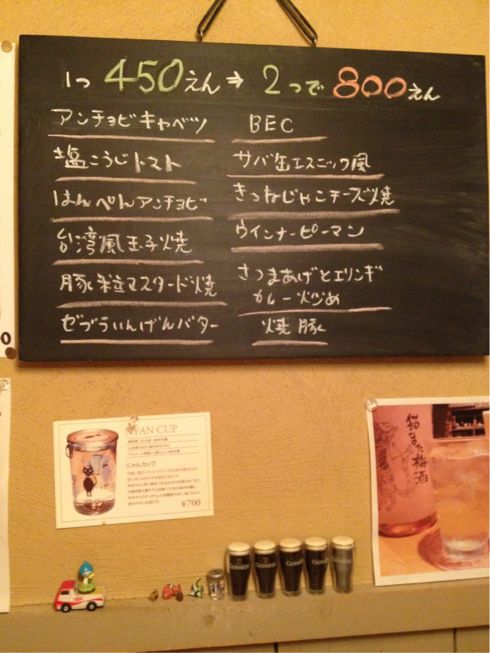 1つ 450えん→2つで800えん
アンチョビキャベツ
塩こうじトマト
はんぺんアンチョビ
台湾風玉子焼
豚粒マスタード焼
ゼブラいんげんバター
BEC
サバ缶エスニック風
きつねじゃこチーズ焼
ウインナーピーマン
さつまあげとエリンギ
カレー炒め
焼豚
NYAN CUP
にゃんカップ
¥700
猫また梅酒
GUINNESS
GUINNESS
GUINNESS
GUINNESS